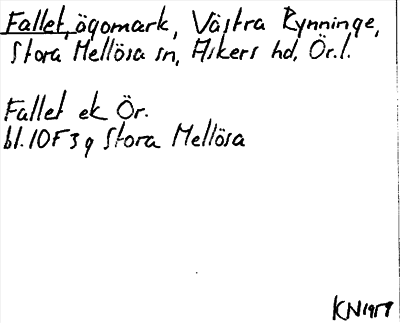 Fallet, ägomark, Västra Rynninge,
Stora Mellösa sn, Askers hd, Ör.l.
Fallet ek Ör.
bl. 10F 3 g Stora Mellösa
KN 1959